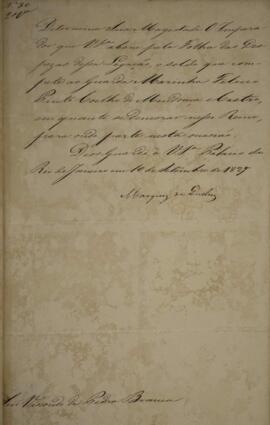 Determina Sua Magestade O Impera
dor que V. Ex.ª abone pela Folha das Des
pezas dessa Legação, o soldo que com
pete ao Guarda Marinha
Pinto Coelho de Mendonça e Castro,
em quanto se demorar nesse Reino,
para onde parte nesta ocasião.
Deos Guarde a V. Ex.ª Palacio do
Rio de Janeiro em 10 de Setembro de 1827
Marquez de Queluz
Snr. Visconde de Pedra Branca